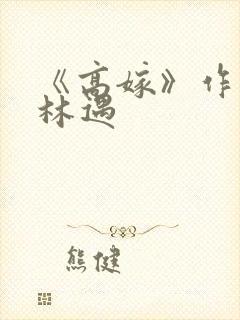 《高嫁》作
林遇
熊健